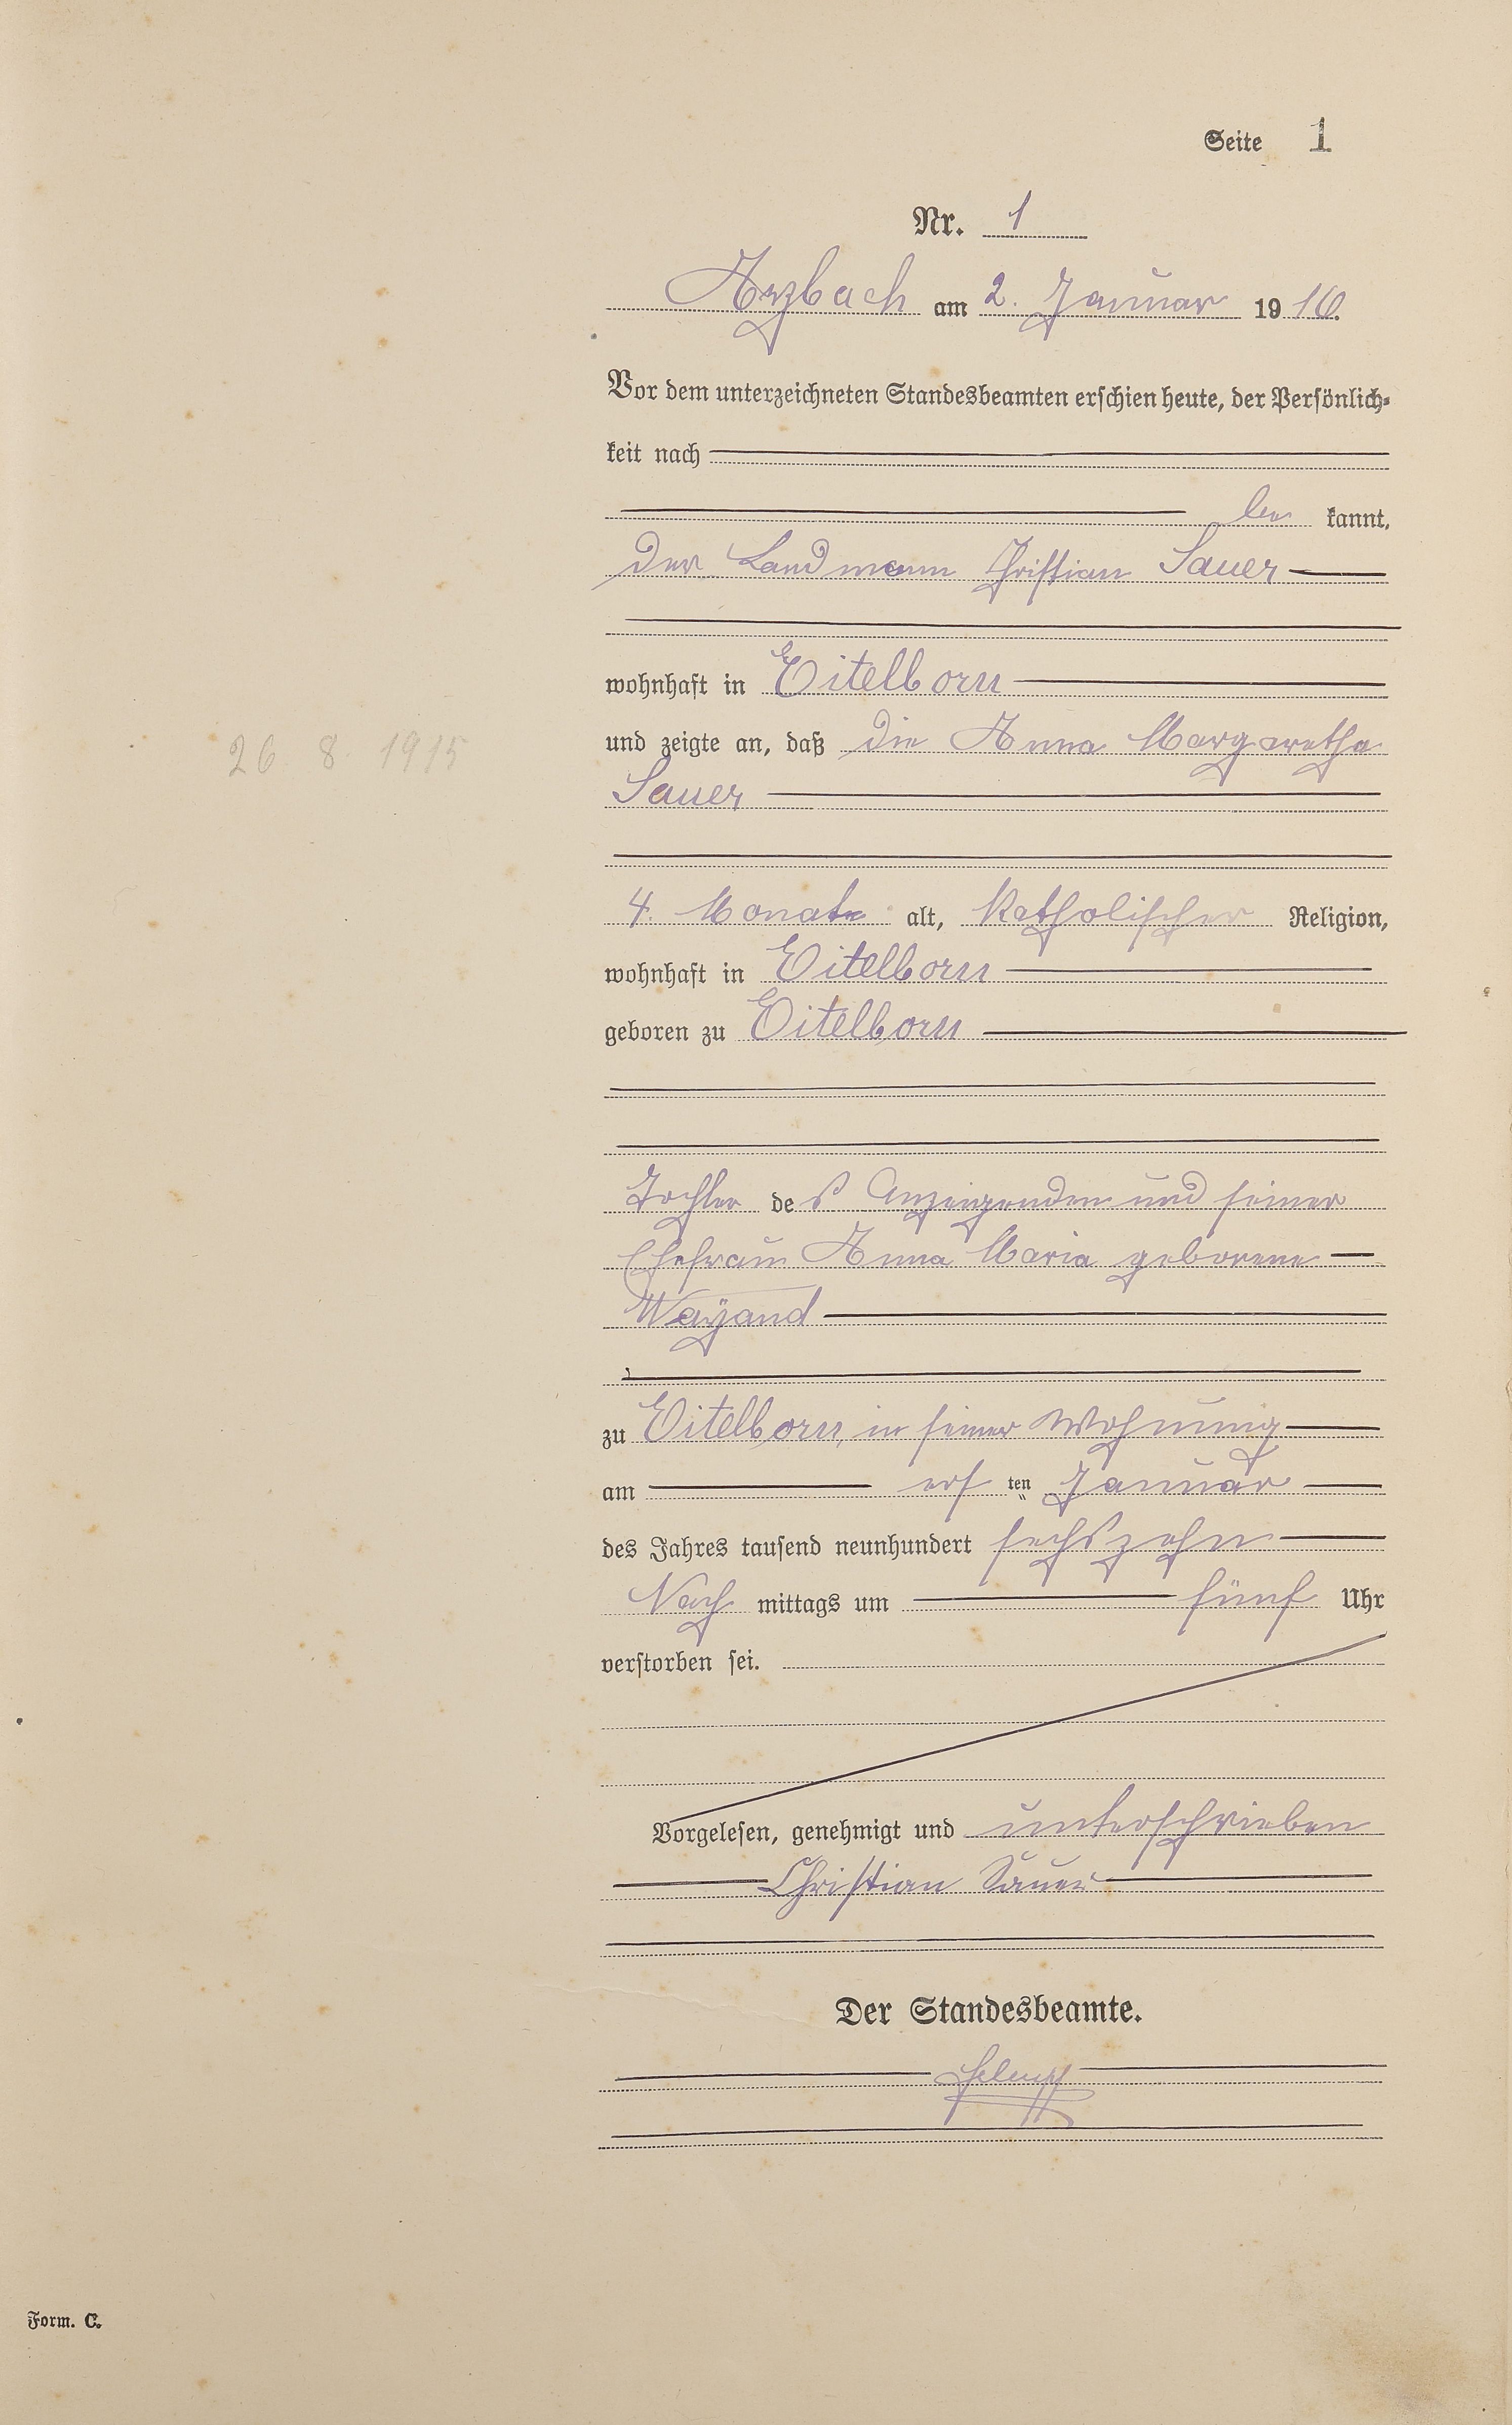 Seite 1
Nr. 1
Arzbach am 2. Januar 19 16.
Vor dem unterzeichneten Standesbeamten erschien heute, der Persönlich-
keit nach
be kannt,
der Landmann Christian Sauer
wohnhaft in Eitelborn
und zeigte an, daß die Anna Margaretha
26 8 1915
Sauer
4 Monate alt, katholischer Religion,
wohnhaft in Eitelborn
geboren zu Eitelborn
Tochter des Anzeigenden und seiner
Ehefrau Anna Maria geborene
Waÿand
zu Eitelborn, in seiner Wohnung
am ers ten Januar
des Jahres tausend neunhundert sechszehn
Nach mittags um fünf Uhr
verstorben sei.
Vorgelesen, genehmigt und unterschrieben
Christian Sauer
Der Standesbeamte.
Form. C.